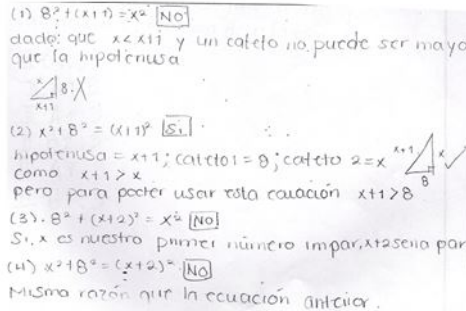 (1) 8² + (x+1) = x² NO
dado que x < x+1 y un cateto no puede ser mayo
que la hipotenusa
x 8 X
x+1
(2) x² + 8² = (x+1)² Si
hipotenusa = x+1; cateto1 = 8; cateto 2 = x
x+1 x ✓
8
como x+1 > x
pero para poder usar esta ecuación x+1 > 8
(3). 8² + (x+2)² = x² NO
Si x es nuestro primer número impar, x+2 seria par
(4) x² + 8² = (x+2)² NO
Misma razón que la ecuación anterior.